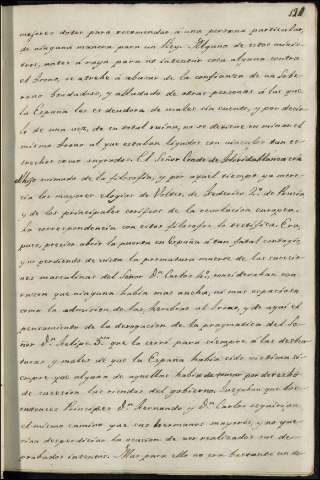 mejores dotes para recomendar á una persona particular,
de ninguna manera para un Rey. Alguno de estos minis-
tros, antes á raya para no intentar cosa alguna contra
el trono, se atrebe á abusar de la confianza de un Sobe-
rano bondadoso, y ayudado de otras personas á las que
la España les es deudora de males sin cuento, y por decir-
lo de una vez, de su total ruina, no se desvia en minar el
mismo trono al que estaban ligados con vinculos tan es-
trechos como sagrados. El Señor Conde de Florida blanca era
el hijo mimado de la filosofia, y por aquel tiempo ya mere-
cia los mayores elogios de Volter, de Federico 2º de Prusia
y de los principales corifeos de la revolucion europea.
La correspondencia con estos filosofos lo testifica. Era,
pues, preciso abrir la puerta en España á tan fatal contagio,
y no perdiendo de vista la prematura muerte de los succeso-
res masculinos del Señor Dn. Carlos 4º, consideraban con
razon que ninguna habia mas ancha, ni mas espaciosa
como la admision de las hembras al trono, y de aqui el
pensamiento de la derogacion de la pragmatica del Se-
ñor Dn. Felipe 5º que la cerró para siempre á las desven-
turas y males de que la España habia sido victima si-
empre que alguna de aquellas habia de tomar por derecho
de succesion las riendas del gobierno. Juzgaban que los
entonces Principes Dn. Fernando y Dn. Carlos seguirian
el mismo camino que sus hermanos mayores, y no que-
rian desperdiciar la ocasion de ver realizados sus de-
prabados intentos. Mas para ello no era bastante un de-